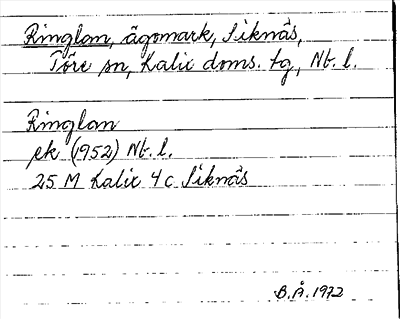 Ringlan, ägomark, Siknäs,
Töre sn, Kalix doms. tg, Nb. l.
Ringlan
ek (1952) Nb. l.
25 M Kalix 4 c Siknäs
B.Å. 1972